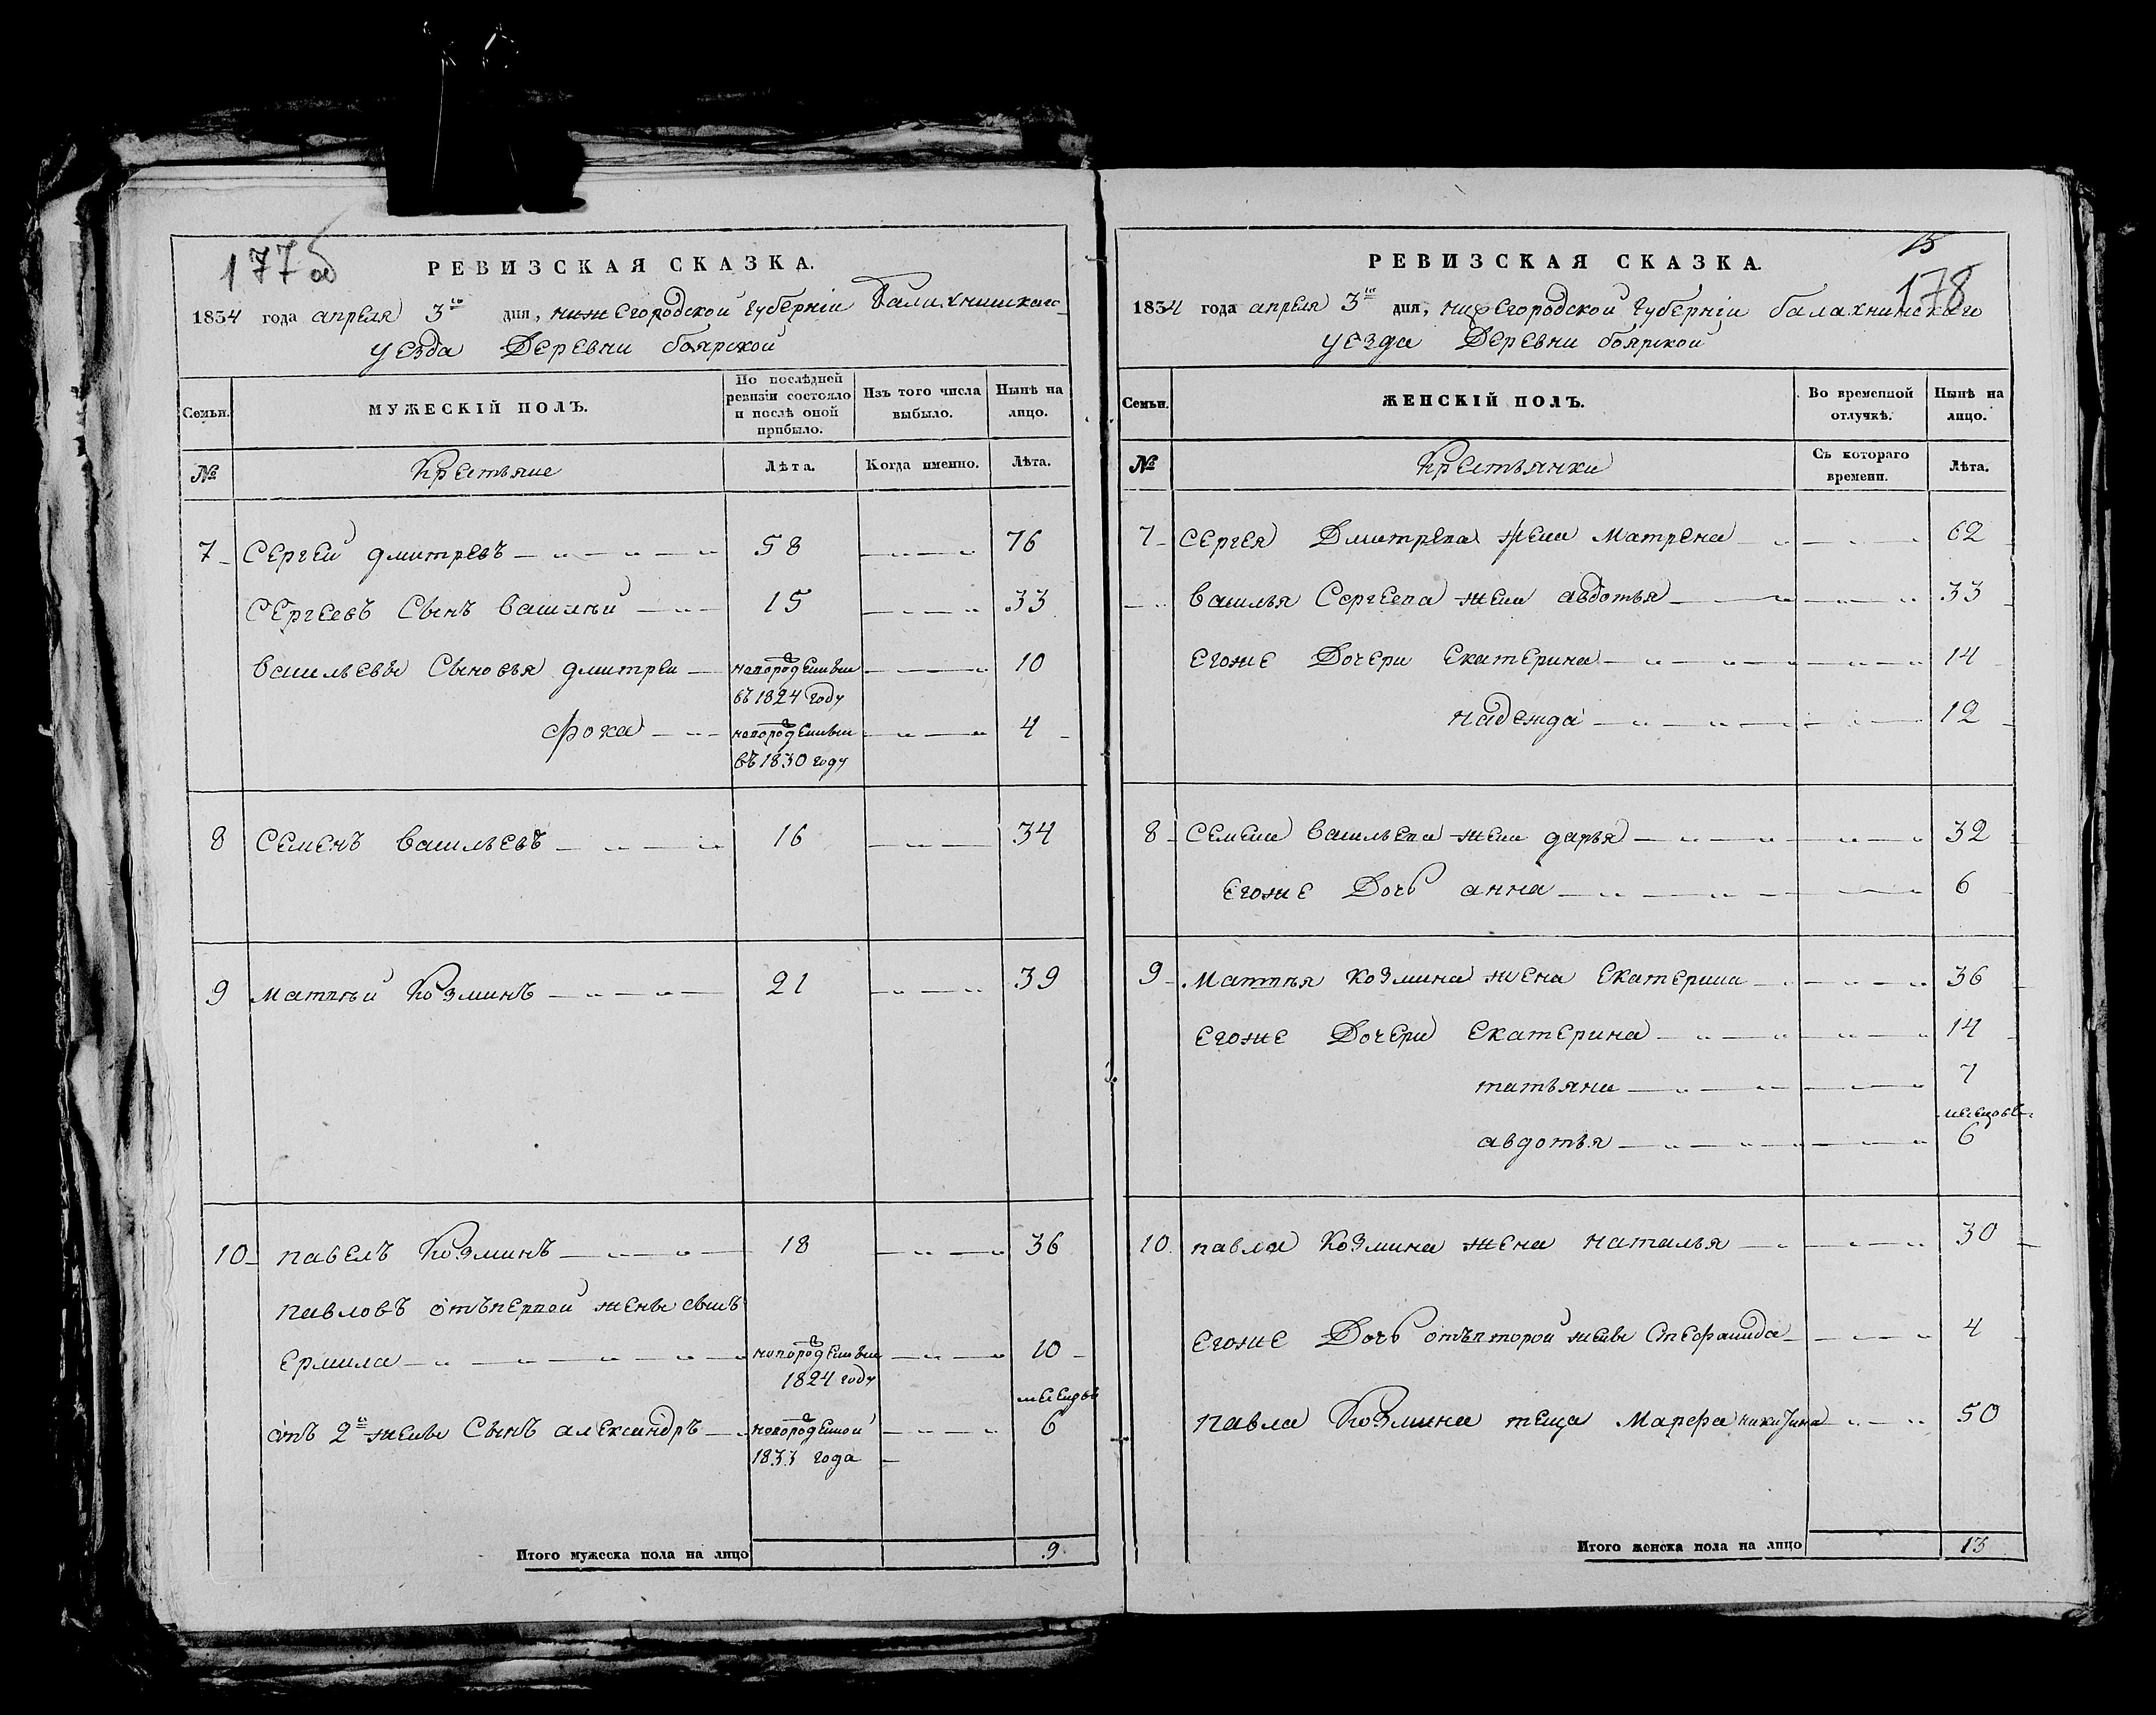 177 об
РЕВИЗСКАЯ СКАЗКА.
1834 года апреля 3го дня, нижЕгородской губернiи балахнинскаго
уезда Деревни боярской
Семьи. МУЖЕСКIЙ ПОЛЪ. По послѣдней ревизiи состояло и послѣ оной прибыло. Изъ того числа выбыло. Нынѣ на лицо.
№ Крестьяне Лѣта. Когда именно. Лѣта.
7 Сергей дмитревъ 58 76
Сергеевъ Сынъ василѣй 15 33
васильевы Сыновья дмитреи новорожденныи 10
въ 1824 году
фока новорожденныи 4
въ 1830 году
8 Семенъ васильевъ 16 34
9 матвѣй Козминъ 21 39
10 павелъ Козминъ 18 36
павловъ отъпервой жены сынъ
Ермила новорожденныи 10
1824 году
месецов
отъ 2й жены Сынъ александръ новорожденной 6
1833 года
Итого мужеска пола на лицо 9
15
178
РЕВИЗСКАЯ СКАЗКА.
1834 года апреля 3го дня, нижЕгородской губернiи балахнинскаго
уезда Деревни боярской
Семьи. ЖЕНСКIЙ ПОЛЪ. Во временной отлучкѣ. Нынѣ на лицо.
№ Крестьянки Съ котораго времени. Лѣта.
7 Сергея Дмитрева жена Матрена 62
василья Сергеева жена авдотья 33
Егоже Дочери Екатерина 14
надежда 12
8 Семена васильева жена дарья 32
Егоже Дочь анна 6
9 Матвѣя Козмина жена Екатерина 36
Егоже Дочери Екатерина 14
татьяна 7
месецовъ
авдотья 6
10 павла Козмина жена наталья 30
Егоже Дочь отъвторой жены Стефанида 4
павла Козмина теща Марфа никитина 50
Итого женска пола на лицо 13